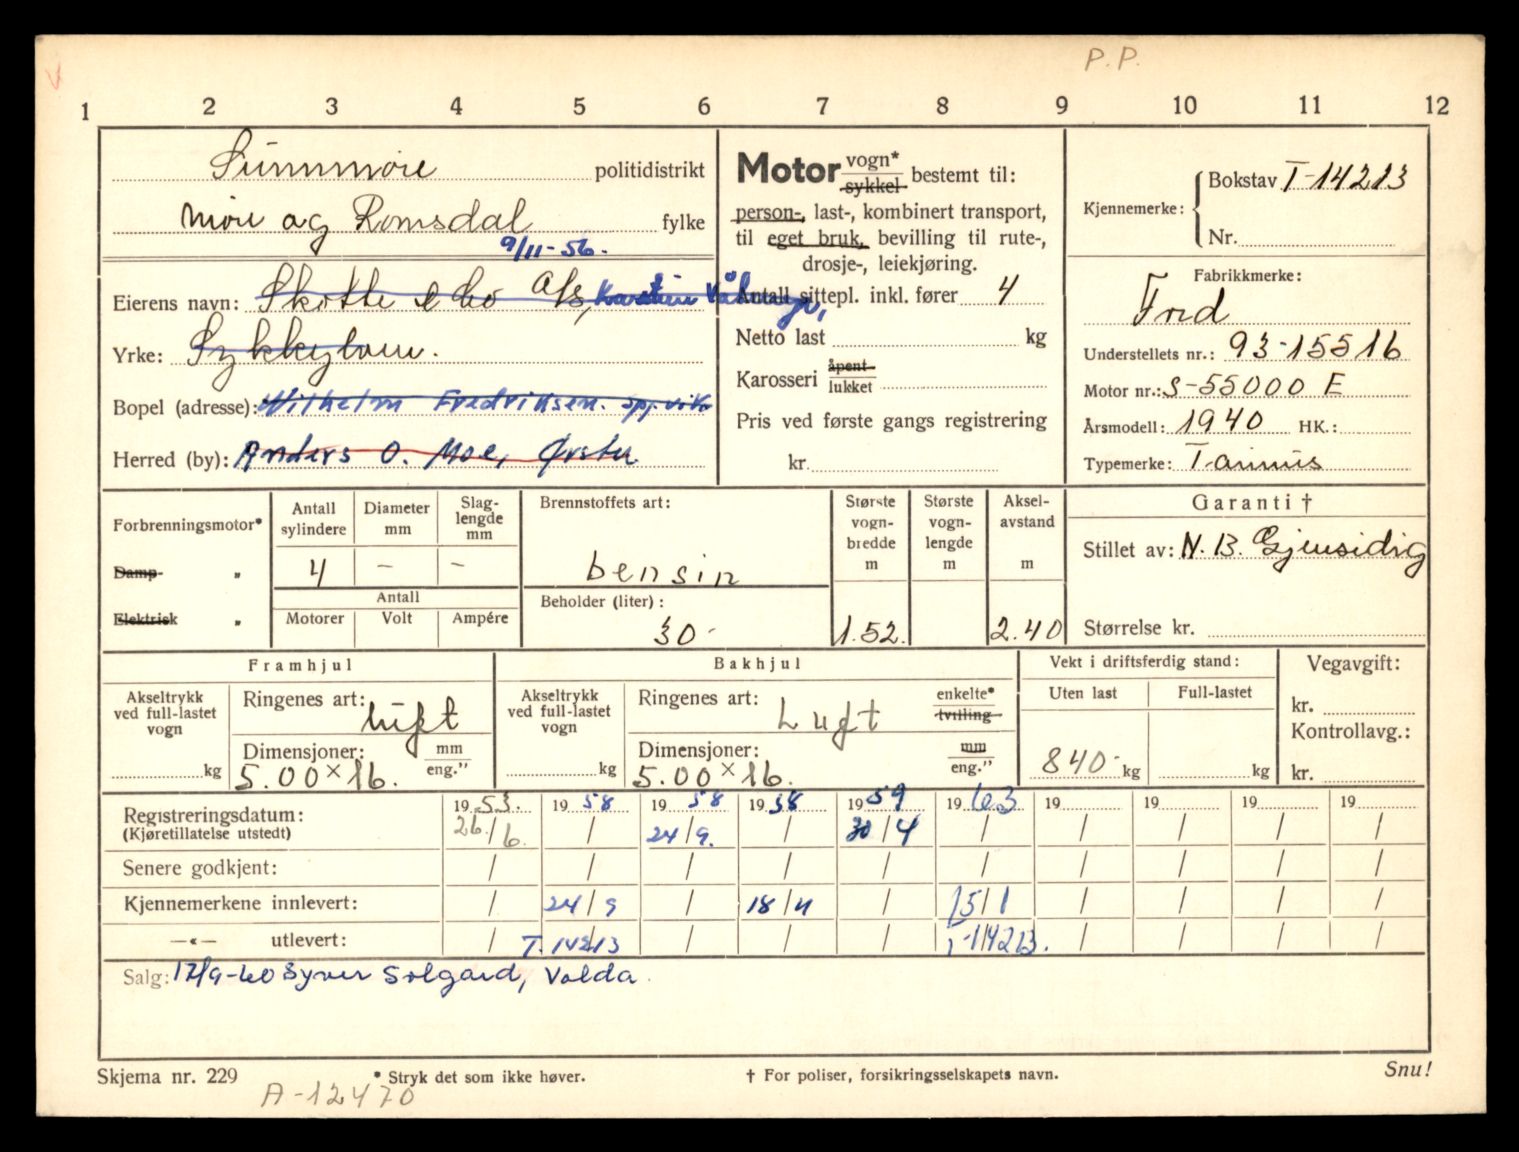 P. P.
1 2 3 4 5 6 7 8 9 10 11 12
Sunnmøre politidistrikt
Møre og Romsdal fylke
9/11-56.
Eierens navn: Skotte & Co A/S,
Yrke: Sykkylven.
Bopel (adresse): Wilhelm Fredriksen.
Herred (by): Anders O. Moe, Ørsta
Motor vogn*
sykkel bestemt til:
person-, last-, kombinert transport,
til eget bruk, bevilling til rute-,
drosje-, leiekjøring.
Antall sittepl. inkl. fører 4
Netto last kg
Karosseri åpent
lukket
Pris ved første gangs registrering
kr.
Kjennemerke: Bokstav T-14213
Nr.
Fabrikkmerke:
Ford
Understellets nr.: 93-15516
Motor nr.: S-55000 E
Årsmodell: 1940 HK.:
Typemerke: Taunus
Forbrenningsmotor*
Damp- „
Elektrisk „
Antall sylindere
4
Diameter mm
—
Slaglengde mm
—
Antall
Motorer Volt Ampére
Brennstoffets art:
bensin
Beholder (liter):
30-
Største vognbredde m
1.52.
Største vognlengde m
Akselavstand m
2.40
Garanti †
Stillet av: N. B. Gjensidig
Størrelse kr.
Framhjul
Akseltrykk ved full-lastet vogn
kg
Ringenes art: luft
Dimensjoner: mm
5.00 x 16. eng.”
Bakhjul
Akseltrykk ved full-lastet vogn
kg
Ringenes art: Luft
enkelte*
tvilling
Dimensjoner: mm
5.00 x 16. eng.”
Vekt i driftsferdig stand:
Uten last Full-lastet
840- kg kg
Vegavgift:
kr.
Kontrollavg.:
kr.
19 53. 19 58 19 58 19 58 19 59 19 63 19 19 19 19
Registreringsdatum:
(Kjøretillatelse utstedt) 26./6. / 24/9. / 30/4 / / / / /
Senere godkjent: / / / / / / / / / /
Kjennemerkene innlevert: / 24/9 / 18/11 / 15/1 / / / /
—«— utlevert: / T. 14213 / / / T-14213. / / / /
Salg: 17/9-60 Syver Solgard, Volda.
Skjema nr. 229 * Stryk det som ikke høver. † For poliser, forsikringsselskapets navn. Snu!
A-12470